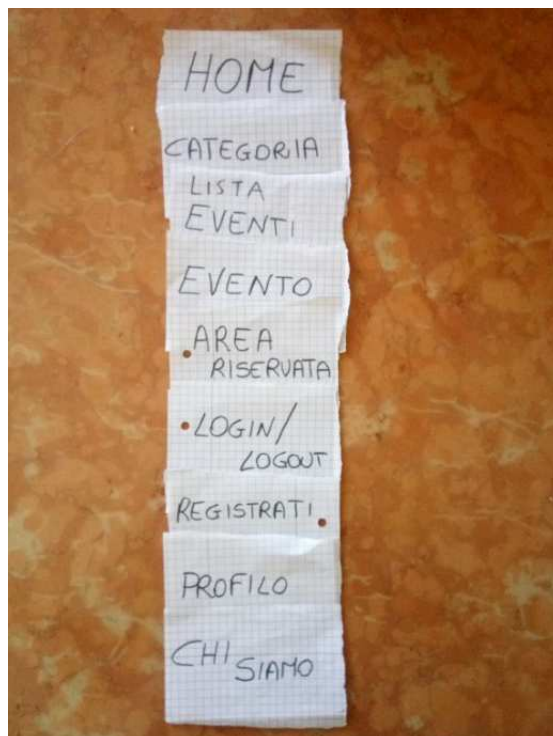 HOME
CATEGORIA
LISTA
EVENTI
EVENTO
AREA
RISERVATA
LOGIN/
LOGOUT
REGISTRATI
PROFILO
CHI SIAMO